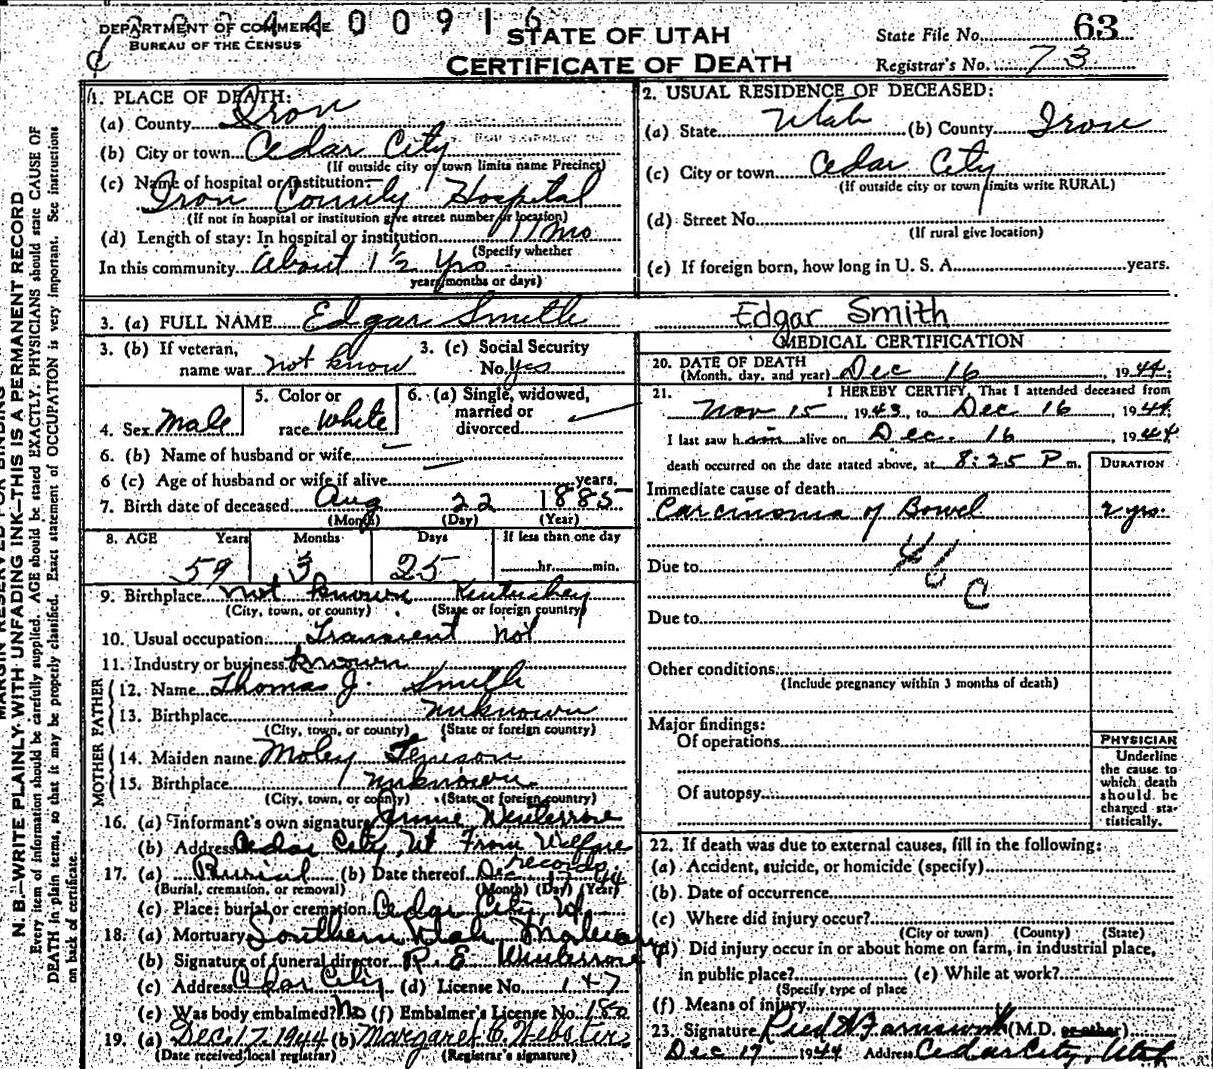 DEPARTMENT OF COMMERCE
BUREAU OF THE CENSUS
4400916
STATE OF UTAH
CERTIFICATE OF DEATH
State File No. 63
Registrar's No. 73
MARGIN RESERVED FOR BINDING
N. B.—WRITE PLAINLY WITH UNFADING INK—THIS IS A PERMANENT RECORD
Every item of information should be carefully supplied. AGE should be stated EXACTLY. PHYSICIANS should state CAUSE OF
DEATH in plain terms, so that it may be properly classified. Exact statement of OCCUPATION is very important. See instructions
on back of certificate.
1. PLACE OF DEATH:
(a) County Iron
(b) City or town Cedar City
(If outside city or town limits name Precinct)
(c) Name of hospital or institution:
Iron County Hospital
(If not in hospital or institution give street number or location)
(d) Length of stay: In hospital or institution 11 mo
(Specify whether
In this community about 1½ yrs
years, months or days)
2. USUAL RESIDENCE OF DECEASED:
(a) State Utah (b) County Iron
(c) City or town Cedar City
(If outside city or town limits write RURAL)
(d) Street No.
(If rural give location)
(e) If foreign born, how long in U. S. A. years.
3. (a) FULL NAME Edgar Smith Edgar Smith
3. (b) If veteran, name war not know
3. (c) Social Security No. yes
4. Sex Male
5. Color or race White
6. (a) Single, widowed, married or divorced
6. (b) Name of husband or wife
6 (c) Age of husband or wife if alive years.
7. Birth date of deceased Aug 22 1885
(Month) (Day) (Year)
8. AGE Years Months Days If less than one day
59 3 25 hr. min.
9. Birthplace not known Kentuckey
(City, town, or county) (State or foreign country)
10. Usual occupation Transient not
11. Industry or business known
FATHER
12. Name Thomas J. Smith
13. Birthplace unknown
(City, town, or county) (State or foreign country)
MOTHER
14. Maiden name Moley
15. Birthplace unknown
(City, town, or county) (State or foreign country)
16. (a) Informant's own signature Winterrose
(b) Address Cedar City, Ut From Welfare
records
17. (a) Burial (b) Date thereof Dec 17 44
(Burial, cremation, or removal) (Month) (Day) (Year)
(c) Place: burial or cremation Cedar City, Ut
18. (a) Mortuary Southern Utah
(b) Signature of funeral director R. E. Winterrose
(c) Address Cedar City (d) License No. 147
(e) Was body embalmed? No (f) Embalmer's License No. 180
19. (a) Dec. 17, 1944 (b) Margaret C. Webster
(Date received local registrar) (Registrar's signature)
MEDICAL CERTIFICATION
20. DATE OF DEATH
(Month, day, and year) Dec 16, 1944;
21. I HEREBY CERTIFY, That I attended deceased from
Nov 15, 1943, to Dec 16, 1944
I last saw him alive on Dec. 16, 1944
death occurred on the date stated above, at 8:25 P m. DURATION
Immediate cause of death
Carcinoma of Bowel 2 yrs.
Due to 46
C
Due to
Other conditions
(Include pregnancy within 3 months of death)
Major findings:
Of operations
Of autopsy
PHYSICIAN
Underline
the cause to
which death
should be
charged sta-
tistically.
22. If death was due to external causes, fill in the following:
(a) Accident, suicide, or homicide (specify)
(b) Date of occurrence
(c) Where did injury occur?
(City or town) (County) (State)
(d) Did injury occur in or about home on farm, in industrial place,
in public place? (e) While at work?
(Specify type of place
(f) Means of injury
23. Signature Farnsworth (M.D. or other)
Dec 17 1944 Address Cedar City, Utah